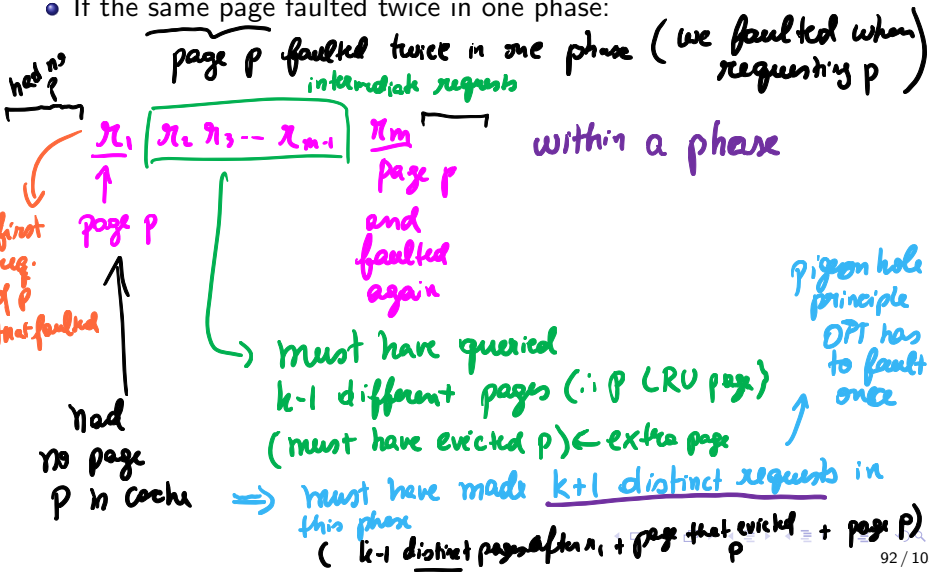 • If the same page faulted twice in one phase:
page p faulted twice in one phase (we faulted when
requesting p)
had no
p
intermediate requests
r₁ r₂ r₃ ... rₘ₋₁ rₘ
within a phase
page p
and
faulted
again
page p
first
req.
of p
that faulted
had
no page
p in cache
must have queried
k-1 different pages (∵ p LRU page)
(must have evicted p) ← extra page
pigeon hole
principle
OPT has
to fault
once
⇒ must have made k+1 distinct requests in
this phase
( k-1 distinct pages after r₁ + page that evicted p + page p)
92 / 10